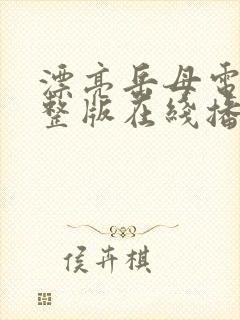 漂亮岳母電
整版在綫播
侯卉棋